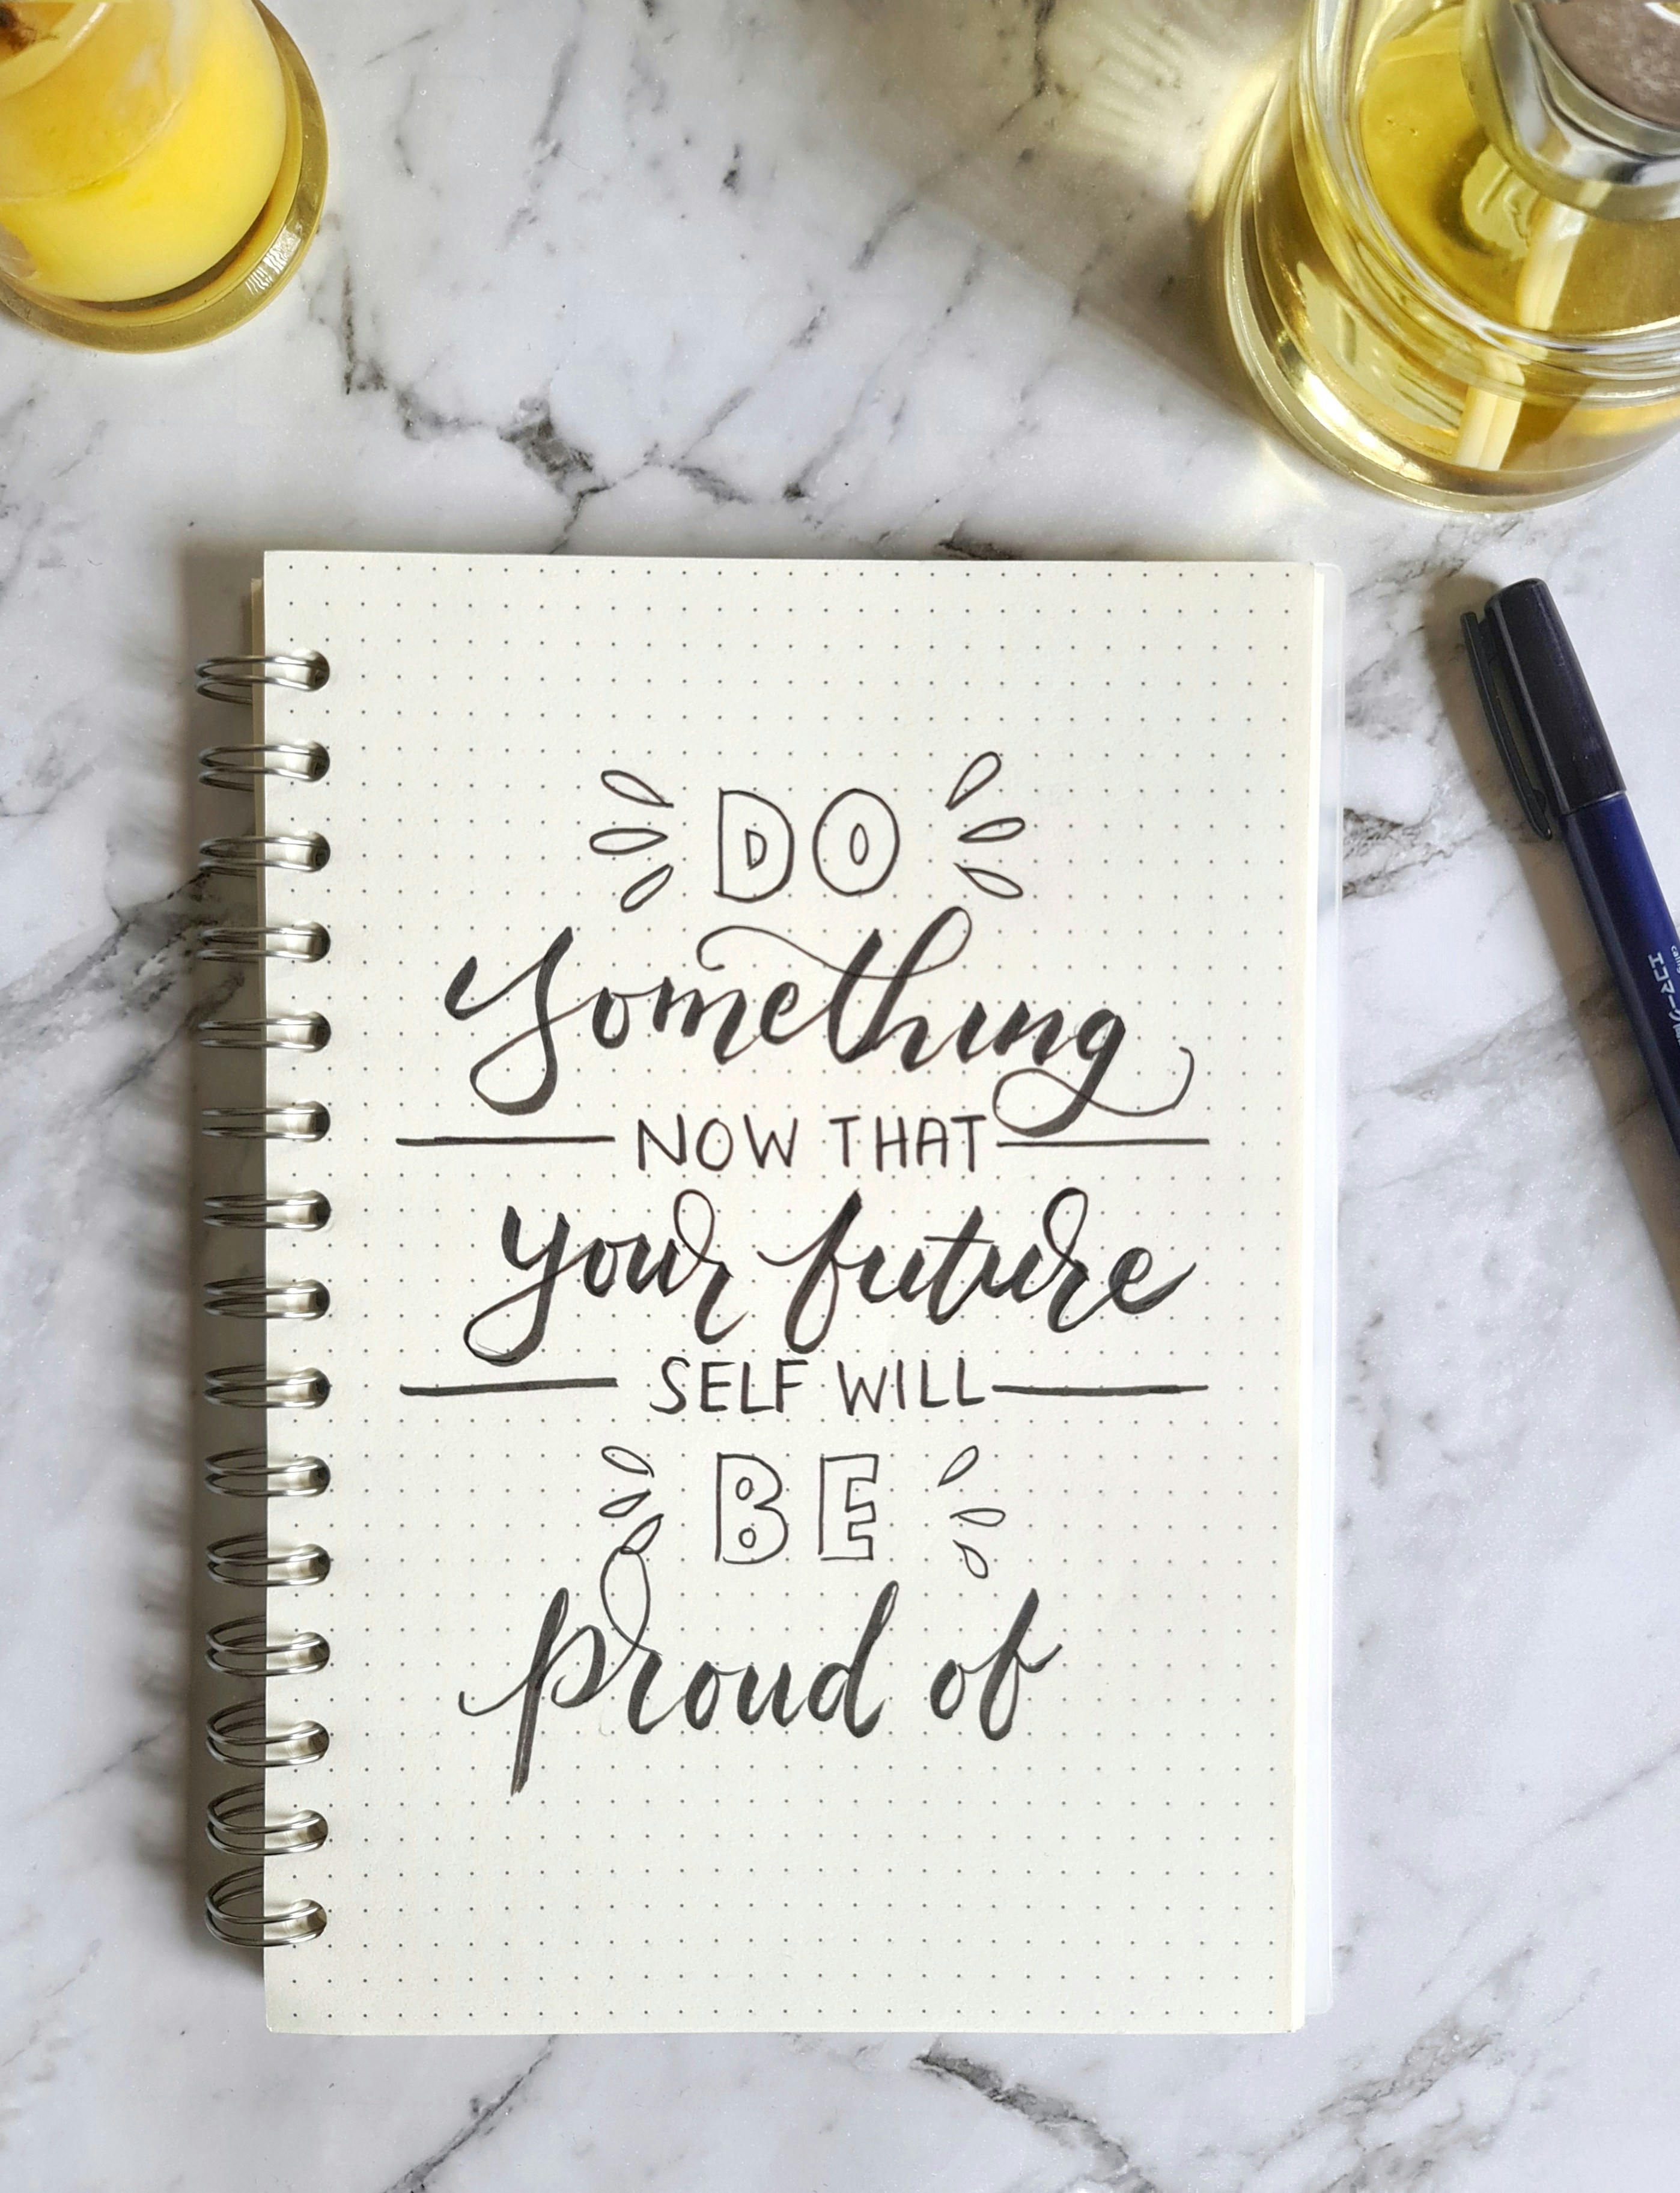 DO
something
NOW THAT
your future
SELF WILL
BE
proud of